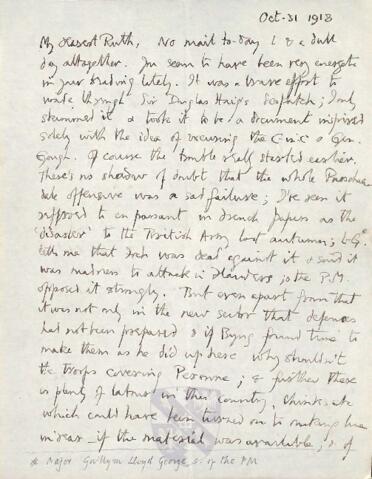 Oct. 31 1918
My dearest Ruth, No mail to-day & a dull
day altogether. You seem to have been very energetic
in your reading lately. It was a brave effort to
wade through Sir Douglas Haig's despatch; I only
skimmed it & took it to be a document inspired
solely with the idea of excusing the C in C & Gen.
Gough. Of course the trouble really started earlier.
There's no shadow of doubt that the whole Passchen-
daele offensive was a sad failure; I've seen it
referred to en passant in French papers as the
'disaster' to the British Army last autumn; & G*
tells me that Foch was dead against it & said it
was madness to attack in Flanders; & the P.M.
opposed it strongly. But even apart from that
it was not only in the new sector that defences
had not been prepared & if Byng found time to
make them as he did up here why shouldn't
the troops covering Peronne; & further there
is plenty of labour in this country, Chinks etc
which could have been turned on to making
in rear – if the material was available; & of
* Major Gwilym Lloyd George, s. of the PM